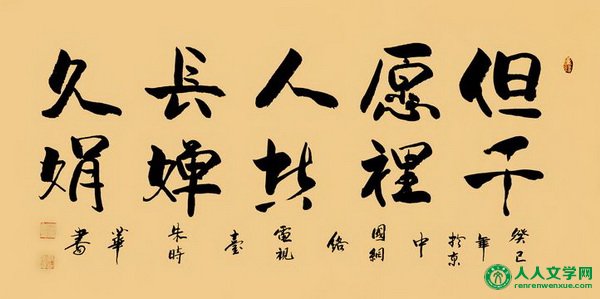 但愿人長久
千裡共嬋娟
癸巳年於京中國網絡電視臺朱時華書
人人文学网
renrenwenxue.com